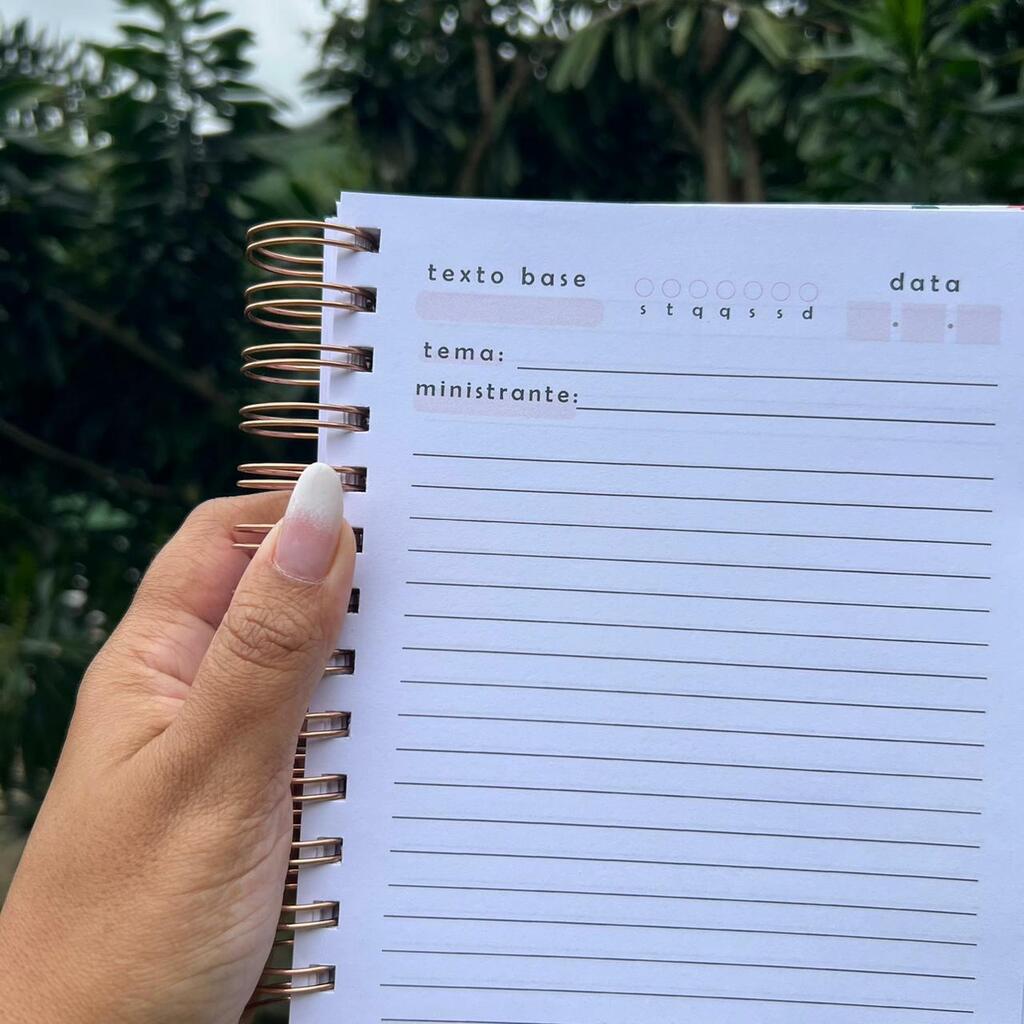 texto base
s t q q s s d
data
tema:
ministrante: